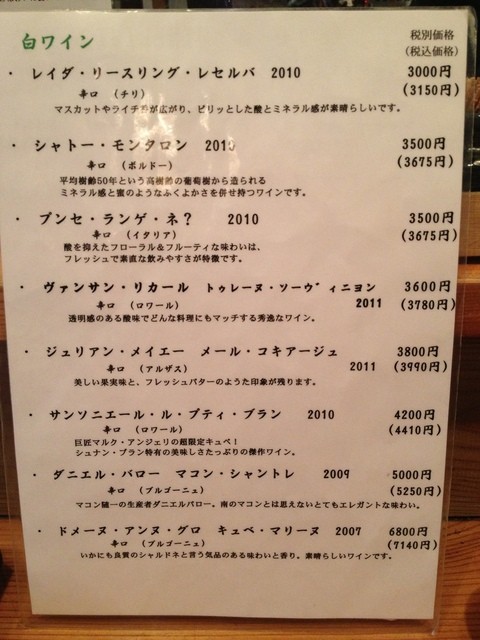 白ワイン
税別価格
(税込価格)
・ レイダ・リースリング・レセルバ 2010 3000円
辛口 (チリ) (3150円)
マスカットやライチ香が広がり、ピリッとした酸とミネラル感が素晴らしいです。
・ シャトー・モンタロン 2010 3500円
辛口 (ボルドー) (3675円)
平均樹齢50年という高樹齢の葡萄樹から造られる
ミネラル感と蜜のようなふくよかさを併せ持つワインです。
・ ブンセ・ランゲ・ネ? 2010 3500円
辛口 (イタリア) (3675円)
酸を抑えたフローラル&フルーティな味わいは、
フレッシュで素直な飲みやすさが特徴です。
・ ヴァンサン・リカール トゥレーヌ・ソーヴィニヨン 3600円
辛口 (ロワール) 2011 (3780円)
透明感のある酸味でどんな料理にもマッチする秀逸なワイン。
・ ジュリアン・メイエー メール・コキアージュ 3800円
辛口 (アルザス) 2011 (3990円)
美しい果実味と、フレッシュバターのようた印象が残ります。
・ サンソニエール・ル・プティ・ブラン 2010 4200円
辛口 (ロワール) (4410円)
巨匠マルク・アンジェリの超限定キュベ!
シュナン・ブラン特有の美味しさたっぷりの傑作ワイン。
・ ダニエル・バロー マコン・シャントレ 2009 5000円
辛口 (ブルゴーニュ) (5250円)
マコン随一の生産者ダニエルバロー。南のマコンとは思えないとてもエレガントな味わい。
・ ドメーヌ・アンヌ・グロ キュベ・マリーヌ 2007 6800円
辛口 (ブルゴーニュ) (7140円)
いかにも良質のシャルドネと言う気品のある味わいと香り。素晴らしいワインです。